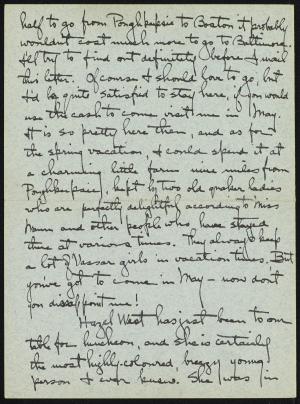 half to go from Poghkepsie to Boston it probably
wouldn't cost much more to go to Baltimore.
I'll try to find out definitely before I mail
this letter. Of course I should love to go, but
I'd be quite satisfied to stay here, if you would
use the cash to come visit me in May.
It is so pretty here then, and as for
the spring vacation, I could spend it at
a charming little farm nine miles from
Poughkepsie, kept by two old quaker ladies
who are perfectly delightful according to Miss
Mann and other people who have stayed
there at various times. They always keep
a lot of Vassar girls in vacation times. But
you've got to come in May - now don't
you disappoint me!
Hazel West has just been to our
table for luncheon, and she is certainly
the most highly-coloured, breezy young
person I ever knew. She was in